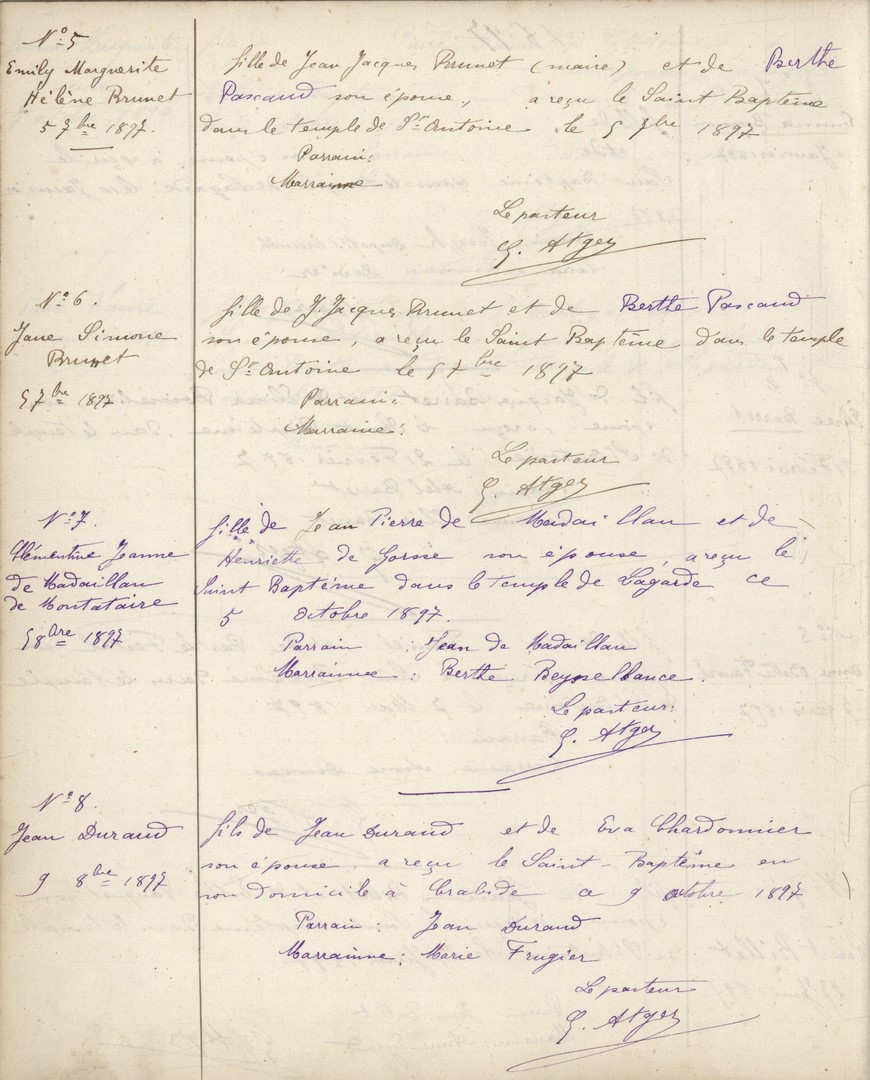 N° 5
Emily Marguerite
Hélène Brunet
5 7bre 1897.
fille de Jean Jacques Brunet (maire) et de Berthe
Pascaud son épouse, a reçu le Saint Baptême
dans le temple de St Antoine le 5 7bre 1897
Parrain:
Marraine
Le pasteur
G. Atger
N° 6.
Jane Simone
Brunet
5 7bre 1897
fille de J. Jacques Brunet et de Berthe Pascaud
son épouse, a reçu le Saint Baptême dans le temple
de St Antoine le 5 7bre 1897
Parrain:
Marraine:
Le pasteur
G. Atger
N° 7.
Clémentine Jeanne
de Madaillan
de Montataire
5 8bre 1897
fille de Jean Pierre de Madaillan et de
Henriette de son épouse, a reçu le
Saint Baptême dans le temple de Lagarde ce
5 octobre 1897.
Parrain : Jean de Madaillan
Marainne : Berthe Beysselance.
Le pasteur:
G. Atger
N° 8.
Jean Durand
9 8bre 1897
fils de Jean Durand et de Eva Chardonnier
son épouse, a reçu le Saint-Baptême en
son domicile à ce 9 octobre 1897
Parrain : Jean Durand
Marrainne : Marie Frugier
Le pasteur
G. Atger